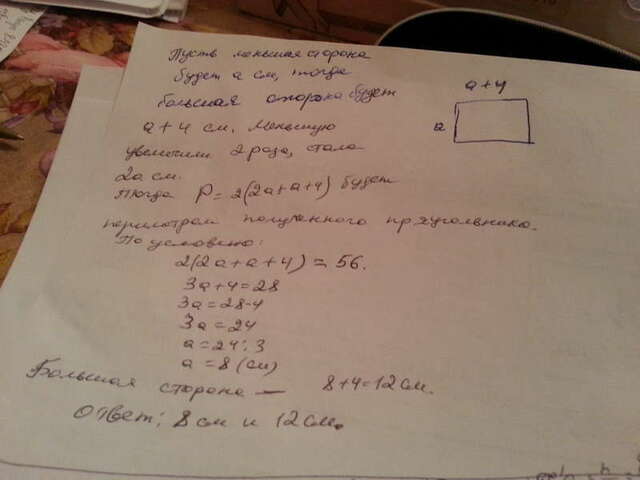 Пусть меньшая сторона
будет a см, тогда
большая сторона будет
a+4 см. Меньшую
увеличили 2 раза, стала
2a см.
Тогда P=2(2a+a+4) будет
периметром полученного прямоугольника.
По условию:
2(2a+a+4)=56.
3a+4=28
3a=28-4
3a=24
a=24:3
a=8(см)
Большая сторона — 8+4=12см.
Ответ: 8см и 12см.
a+4
a